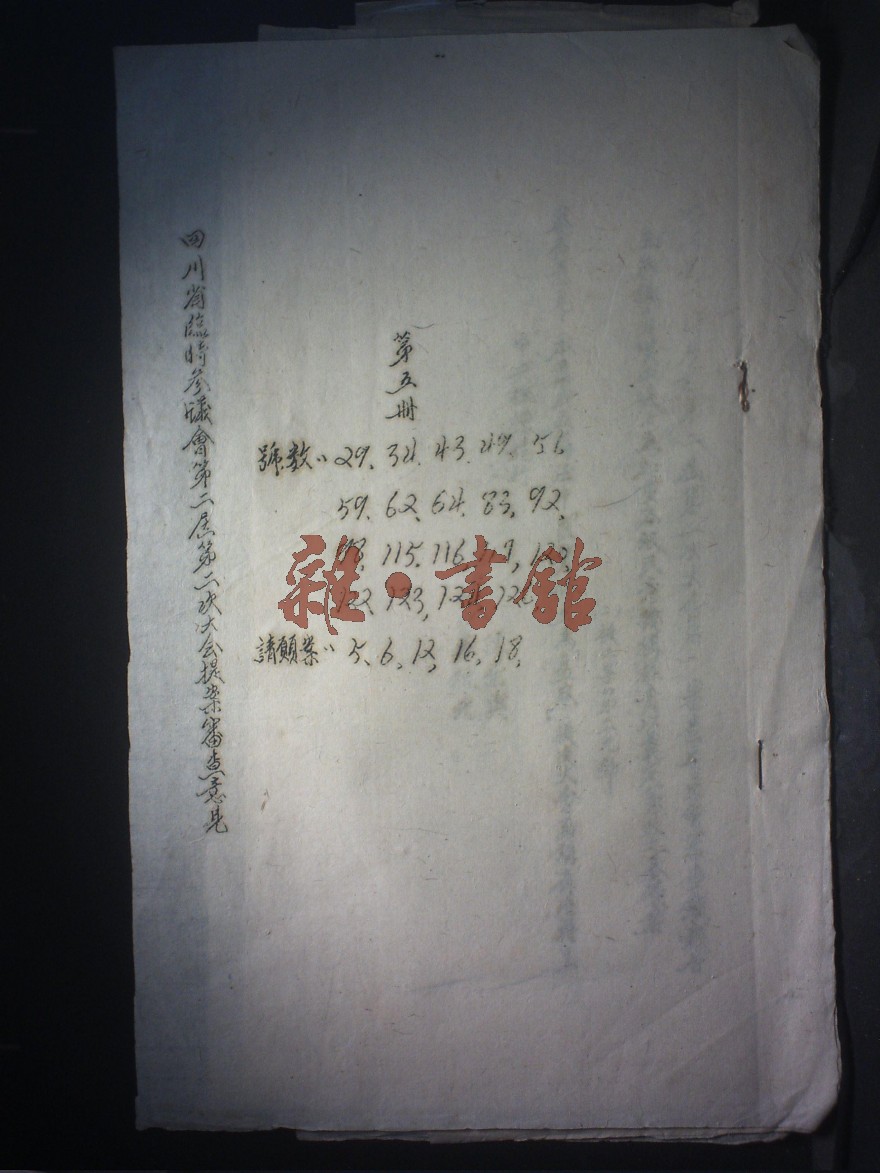 四川省臨時參議會第二屆第二次大会提案審查意見
第五冊
號數：29、34、43、49、56
59、62、64、83、92、
115、116、
123、
請願案：5、6、12、16、18、
雜·書館